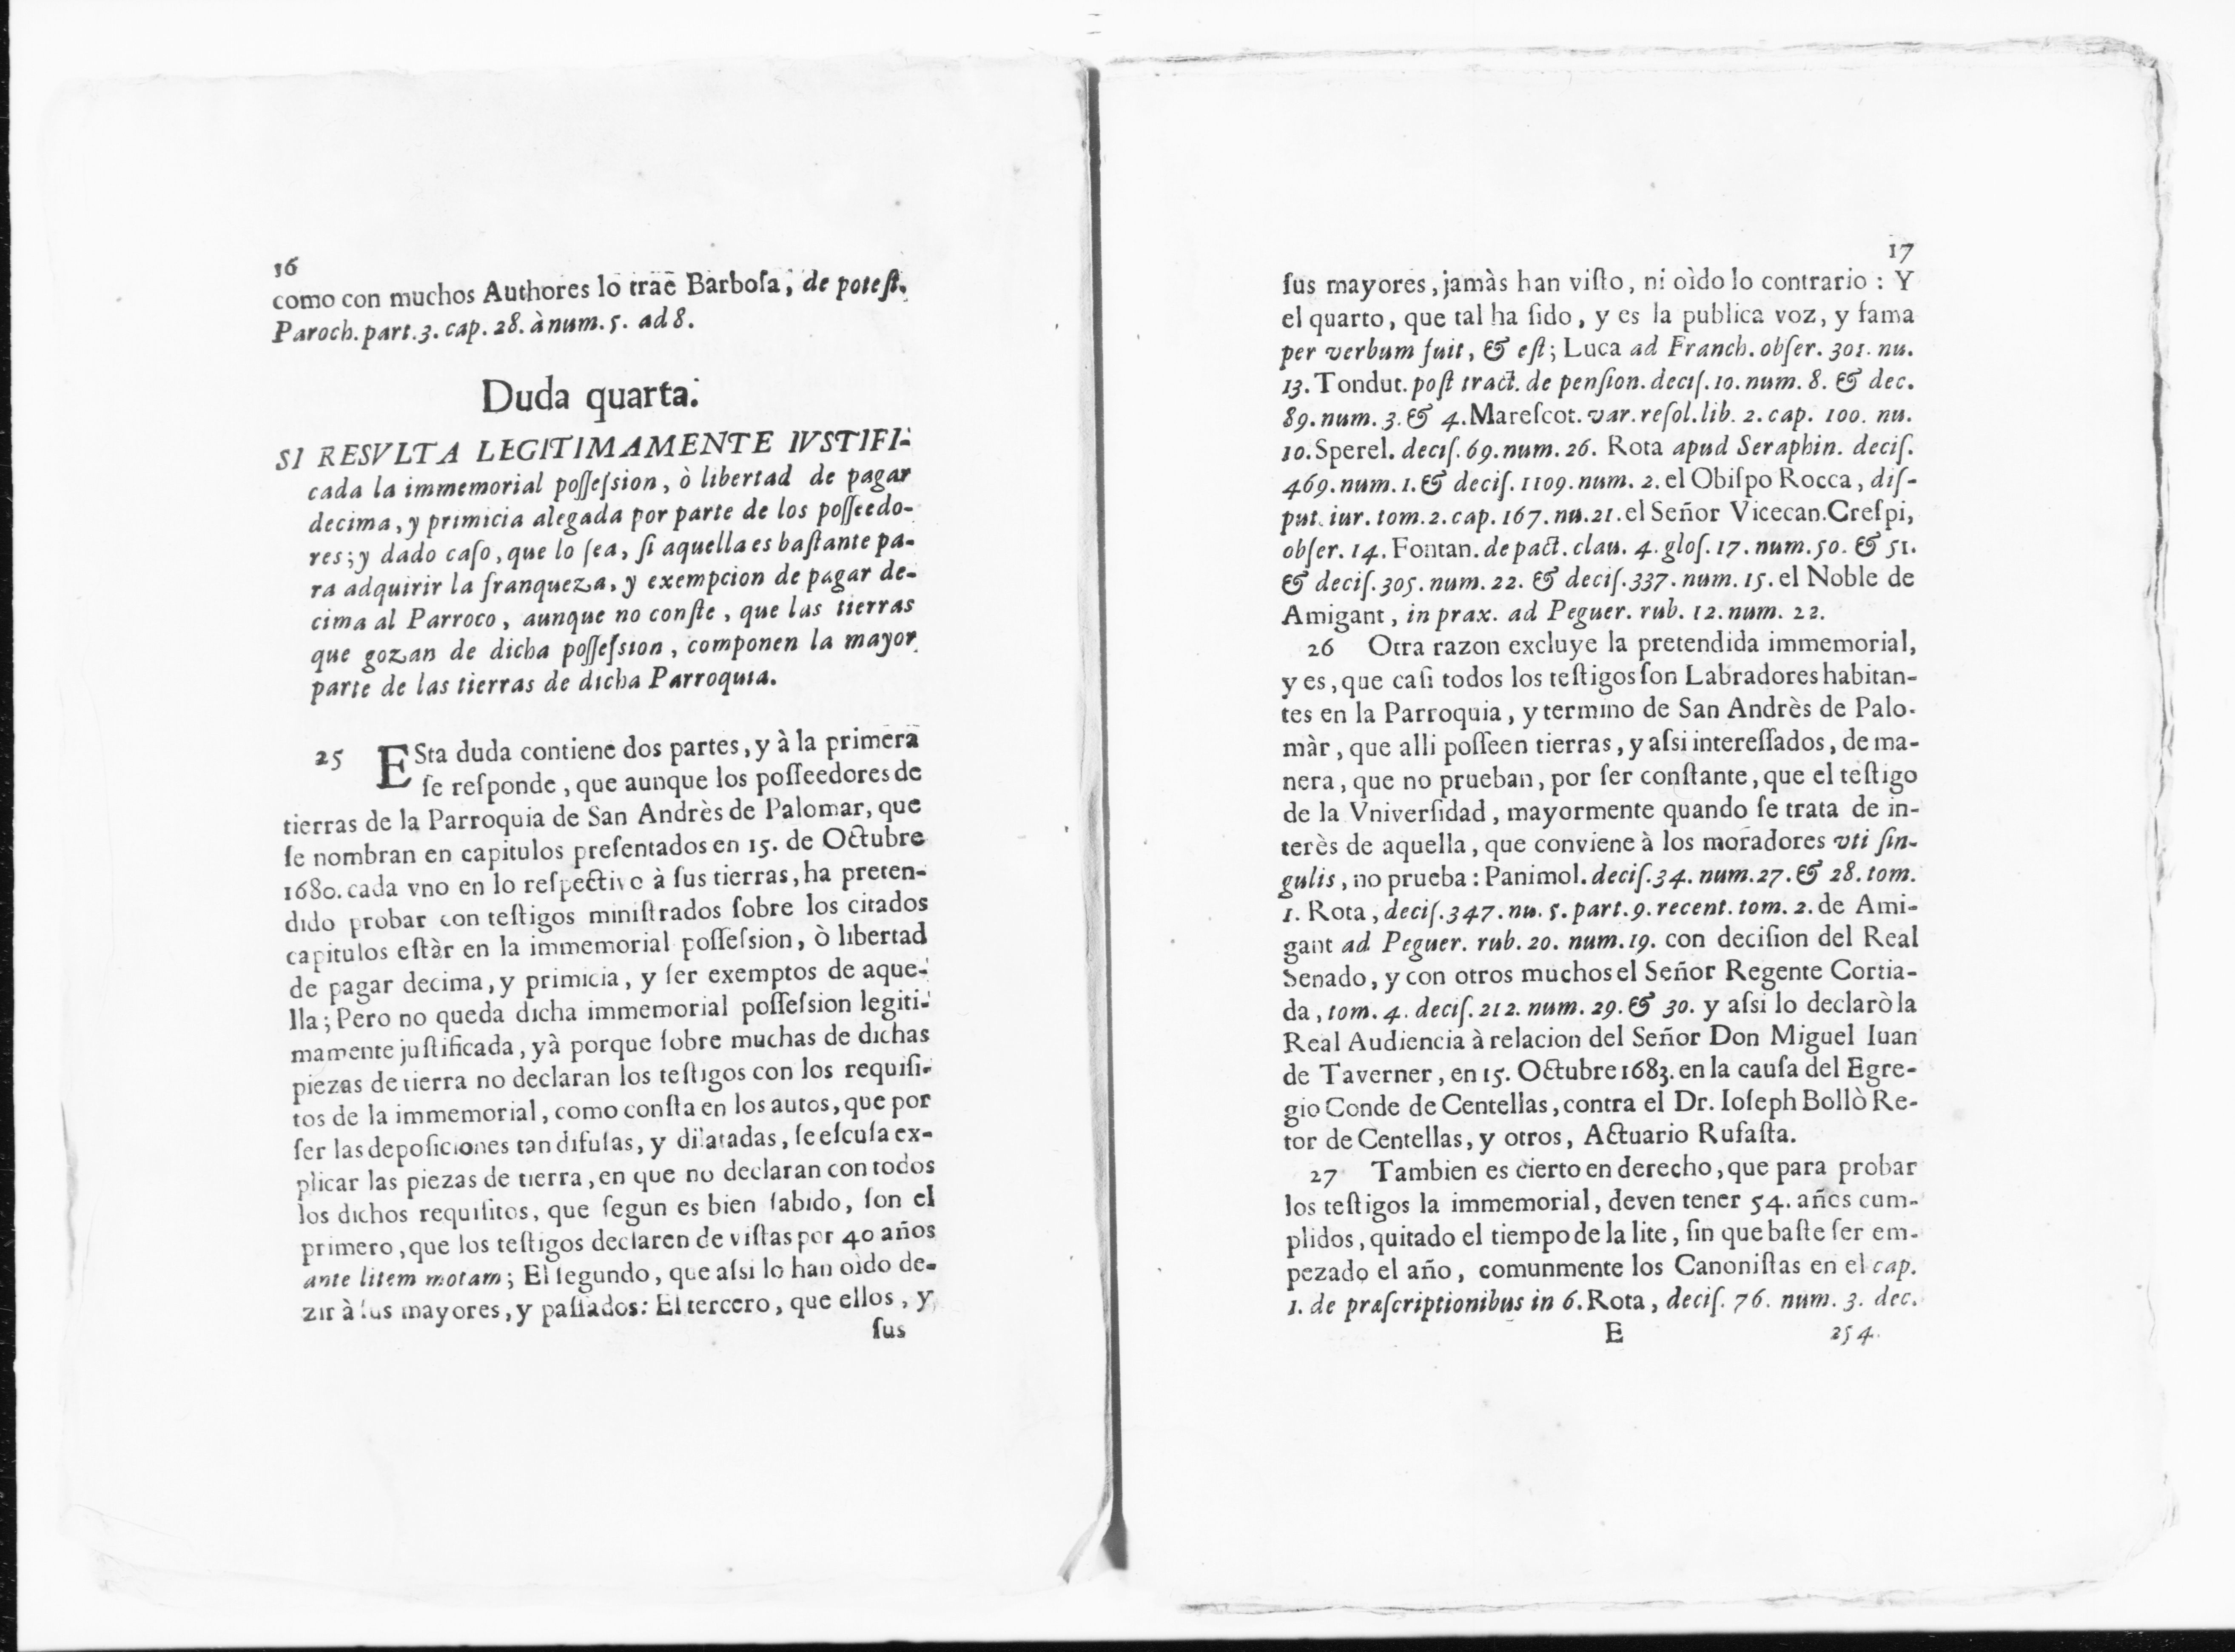 16
como con muchos Authores lo trae Barboſa, de poteſt.
Paroch. part. 3. cap. 28. à num. 5. ad 8.
Duda quarta.
SI RESVLTA LEGITIMAMENTE IVSTIFI-
cada la immemorial poſſeſsion, ò libertad de pagar
decima, y primicia alegada por parte de los poſſeedo-
res; y dado caſo, que lo ſea, ſi aquella es baſtante pa-
ra adquirir la franqueza, y exempcion de pagar de-
cima al Parroco, aunque no conſte, que las tierras
que gozan de dicha poſſeſsion, componen la mayor
parte de las tierras de dicha Parroquia.
25 ESta duda contiene dos partes, y à la primera
ſe reſponde, que aunque los poſſeedores de
tierras de la Parroquia de San Andrès de Palomar, que
ſe nombran en capitulos preſentados en 15. de Octubre
1680. cada vno en lo reſpectivo à ſus tierras, ha preten-
dido probar con teſtigos miniſtrados ſobre los citados
capitulos eſtàr en la immemorial poſſeſsion, ò libertad
de pagar decima, y primicia, y ſer exemptos de aque-
lla; Pero no queda dicha immemorial poſſeſsion legiti-
mamente juſtificada, yà porque ſobre muchas de dichas
piezas de tierra no declaran los teſtigos con los requiſi-
tos de la immemorial, como conſta en los autos, que por
ſer las depoſiciones tan difuſas, y dilatadas, ſe eſcuſa ex-
plicar las piezas de tierra, en que no declaran con todos
los dichos requiſitos, que ſegun es bien ſabido, ſon el
primero, que los teſtigos declaren de viſtas por 40 años
ante litem motam; El ſegundo, que aſsi lo han oìdo de-
zir à ſus mayores, y paſſados: El tercero, que ellos, y
ſus
17
ſus mayores, jamàs han viſto, ni oìdo lo contrario: Y
el quarto, que tal ha ſido, y es la publica voz, y fama
per verbum fuit, & eſt; Luca ad Franch. obſer. 301. nu.
13. Tondut. poſt tract. de penſion. deciſ. 10. num. 8. & dec.
89. num. 3. & 4. Mareſcot. var. reſol. lib. 2. cap. 100. nu.
10. Sperel. deciſ. 69. num. 26. Rota apud Seraphin. deciſ.
469. num. 1. & deciſ. 1109. num. 2. el Obiſpo Rocca, diſ-
put. iur. tom. 2. cap. 167. nu. 21. el Señor Vicecan. Creſpi,
obſer. 14. Fontan. de pact. clau. 4. gloſ. 17. num. 50. & 51.
& deciſ. 305. num. 22. & deciſ. 337. num. 15. el Noble de
Amigant, in prax. ad Peguer. rub. 12. num. 22.
26 Otra razon excluye la pretendida immemorial,
y es, que caſi todos los teſtigos ſon Labradores habitan-
tes en la Parroquia, y termino de San Andrès de Palo-
màr, que alli poſſeen tierras, y aſsi intereſſados, de ma-
nera, que no prueban, por ſer conſtante, que el teſtigo
de la Vniverſidad, mayormente quando ſe trata de in-
terès de aquella, que conviene à los moradores vti ſin-
gulis, no prueba: Panimol. deciſ. 34. num. 27. & 28. tom.
1. Rota, deciſ. 347. nu. 5. part. 9. recent. tom. 2. de Ami-
gant ad Peguer. rub. 20. num. 19. con deciſion del Real
Senado, y con otros muchos el Señor Regente Cortia-
da, tom. 4. deciſ. 212. num. 29. & 30. y aſsi lo declarò la
Real Audiencia à relacion del Señor Don Miguel Iuan
de Taverner, en 15. Octubre 1683. en la cauſa del Egre-
gio Conde de Centellas, contra el Dr. Ioſeph Bollò Re-
tor de Centellas, y otros, Actuario Rufaſta.
27 Tambien es cierto en derecho, que para probar
los teſtigos la immemorial, deven tener 54. años cum-
plidos, quitado el tiempo de la lite, ſin que baſte ſer em-
pezado el año, comunmente los Canoniſtas en el cap.
1. de præſcriptionibus in 6. Rota, deciſ. 76. num. 3. dec.
E 254.